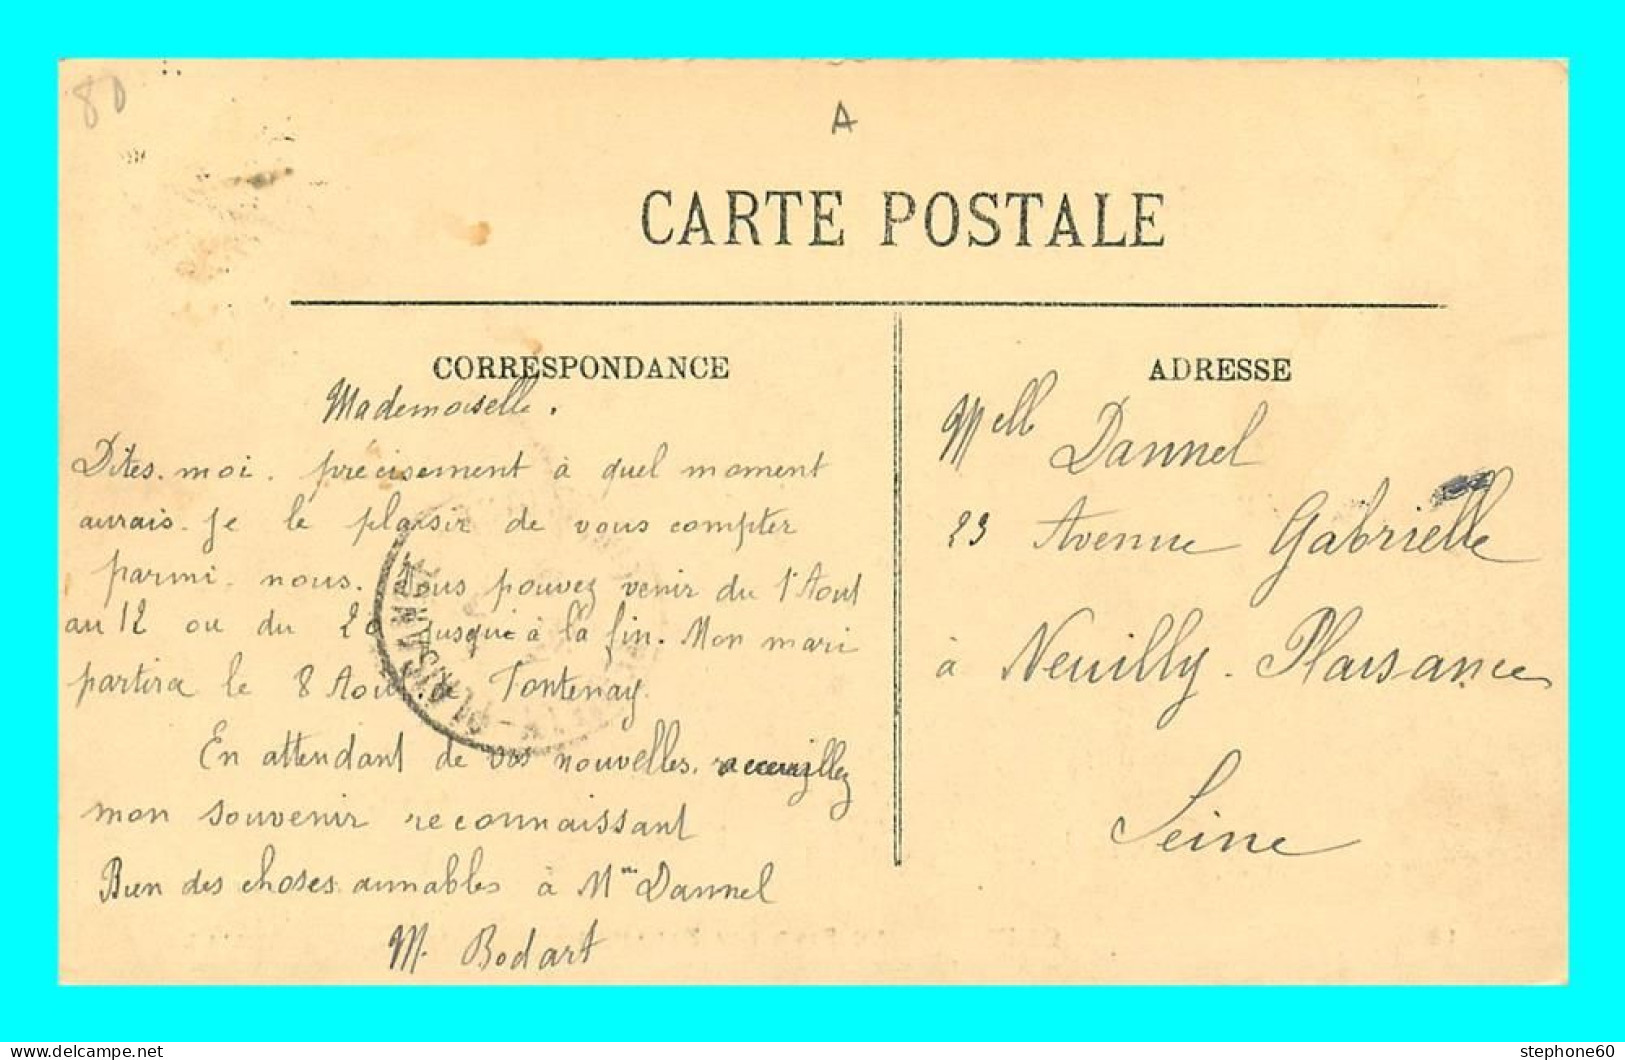 80
A
CARTE POSTALE
CORRESPONDANCE
Mademoiselle.
Dites-moi. précisement à quel moment
aurais-je le plaisir de vous compter
parmi-nous. Vous pouvez venir du 1er Aout
au 12 ou du 20 jusqu'à la fin. Mon mari
partira le 8 Aout à Fontenay.
En attendant de vos nouvelles. recueillez
mon souvenir reconnaissant
Bien des choses aimables à Mme Dannel
M. Bodart
ADRESSE
Mell Dannel
23 Avenue Gabrielle
à Neuilly-Plaisance
Seine
PLAISANCE
delcampe.net
stephone60